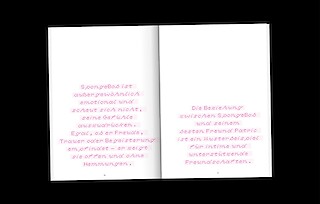 SpongeBob ist
außergewöhnlich
emotional und
scheut sich nicht,
seine Gefühle
auszudrücken.
Egal, ob er Freude,
Trauer oder Begeisterung
empfindet – er zeigt
sie offen und ohne
Hemmungen.
Die Beziehung
zwischen SpongeBob
und seinem
besten Freund Patrick
ist ein Musterbeispiel
für intime und
unterstützende
Freundschaften.